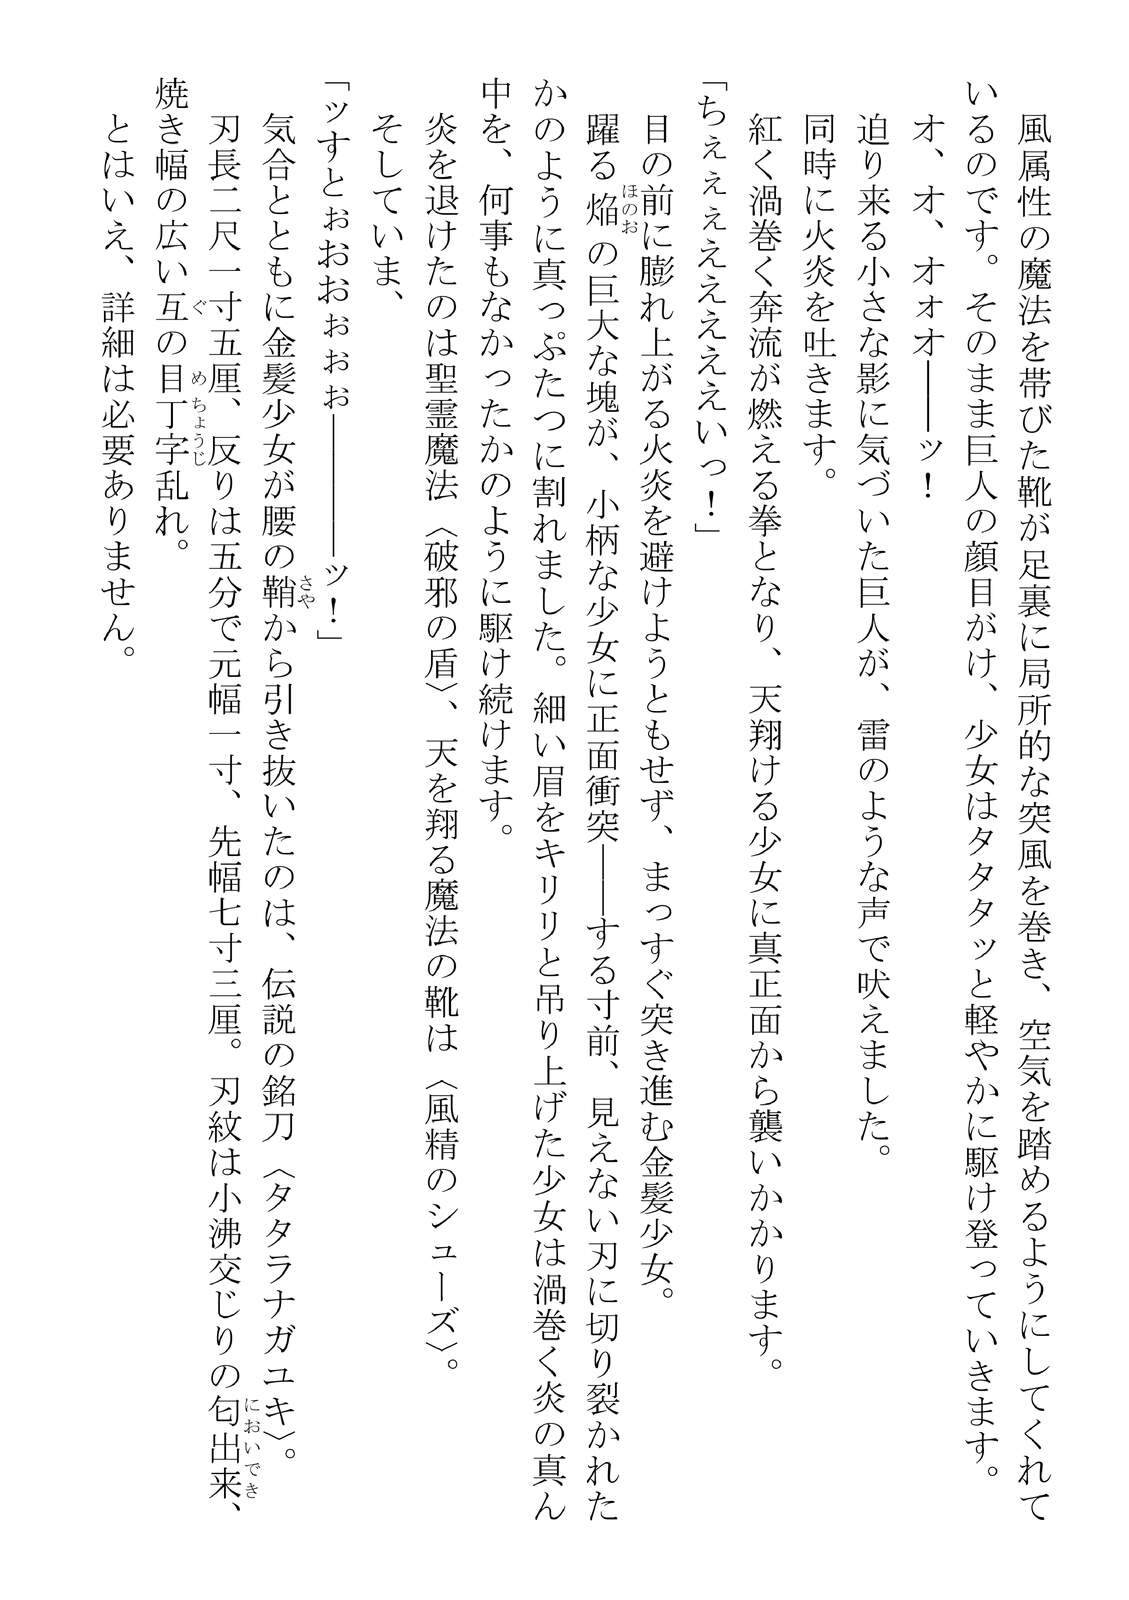 風属性の魔法を帯びた靴が足裏に局所的な突風を巻き、空気を踏めるようにしてくれて
いるのです。そのまま巨人の顔目がけ、少女はタタタッと軽やかに駆け登っていきます。
　オ、オ、オォオ――ッ！
　迫り来る小さな影に気づいた巨人が、雷のような声で吠えました。
　同時に火炎を吐きます。
　紅く渦巻く奔流が燃える拳となり、天翔ける少女に真正面から襲いかかります。
「ちぇぇぇええええええいっ！」
　目の前に膨れ上がる火炎を避けようともせず、まっすぐ突き進む金髪少女。
　躍る焔ほのおの巨大な塊が、小柄な少女に正面衝突――する寸前、見えない刃に切り裂かれた
かのように真っぷたつに割れました。細い眉をキリリと吊り上げた少女は渦巻く炎の真ん
中を、何事もなかったかのように駆け続けます。
　炎を退けたのは聖霊魔法〈破邪の盾〉、天を翔る魔法の靴は〈風精のシューズ〉。
　そしていま、
「ッすとぉおおぉぉぉ――――ッ！」
　気合とともに金髪少女が腰の鞘さやから引き抜いたのは、伝説の銘刀〈タタラナガユキ〉。
　刃長二尺一寸五厘、反りは五分で元幅一寸、先幅七寸三厘。刃紋は小沸交じりの匂出来においでき、
焼き幅の広い互ぐの目め丁字ちょうじ乱れ。
　とはいえ、詳細は必要ありません。